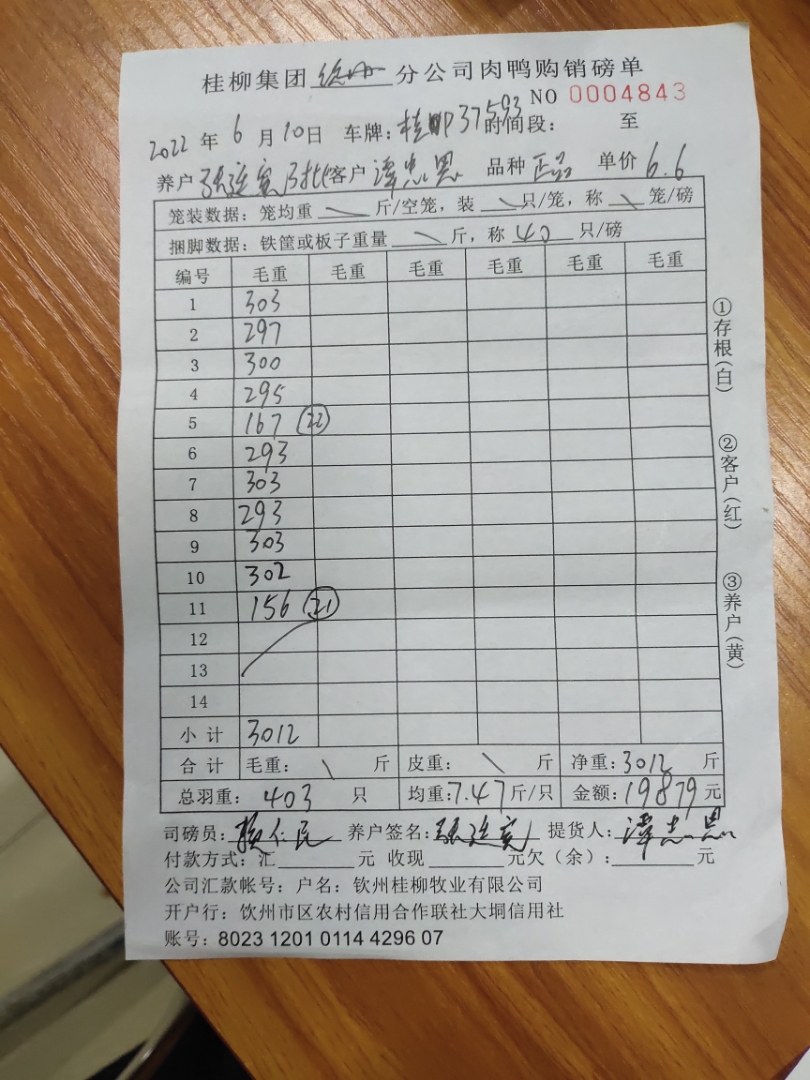 桂柳集团 分公司肉鸭购销磅单
NO 0004843
2022年6月10日 车牌:桂 37593 时间段: 至
养户 张廷宽 客户 谭忠恩 品种 正品 单价 6.6
笼装数据:笼均重 \ 斤/空笼,装 \ 只/笼,称 \ 笼/磅
捆脚数据:铁筐或板子重量 \ 斤,称 40 只/磅
编号 毛重 毛重 毛重 毛重 毛重 毛重
1 303
2 297
3 300
4 295
5 167 (22)
6 293
7 303
8 293
9 303
10 302
11 156 (21)
12
13
14
小计 3012
合计 毛重: \ 斤 皮重: \ 斤 净重:3012 斤
总羽重: 403 只 均重:7.47斤/只 金额:19879元
司磅员: 养户签名:张廷宽 提货人:谭忠恩
付款方式:汇 元 收现 元欠(余): 元
公司汇款帐号:户名:钦州桂柳牧业有限公司
开户行:饮州市区农村信用合作联社大垌信用社
账号:8023 1201 0114 4296 07
①存根(白)
②客户(红)
③养户(黄)